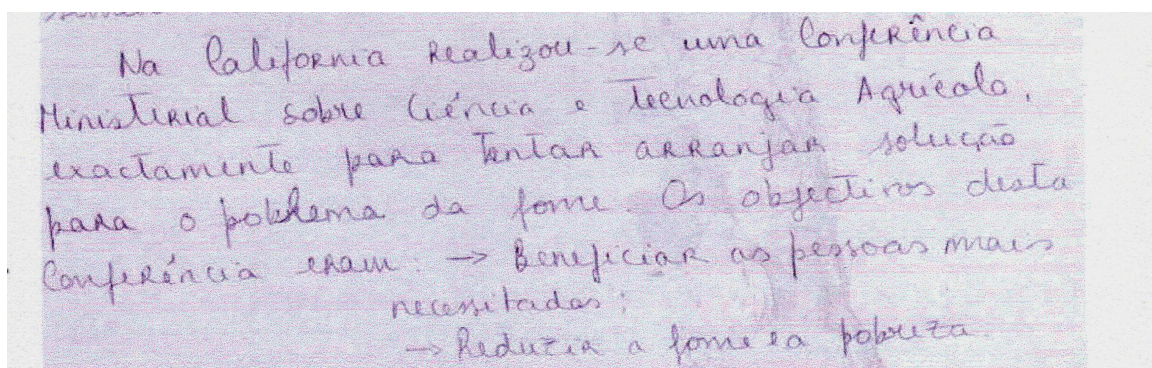 Na California realizou-se uma Conferência
Ministerial sobre Ciência e Tecnologia Agrícola,
exactamente para tentar arranjar solução
para o poblema da fome. Os objectivos desta
Conferência eram: → Beneficiar as pessoas mais
necessitadas;
→ Reduzir a fome e a pobreza.